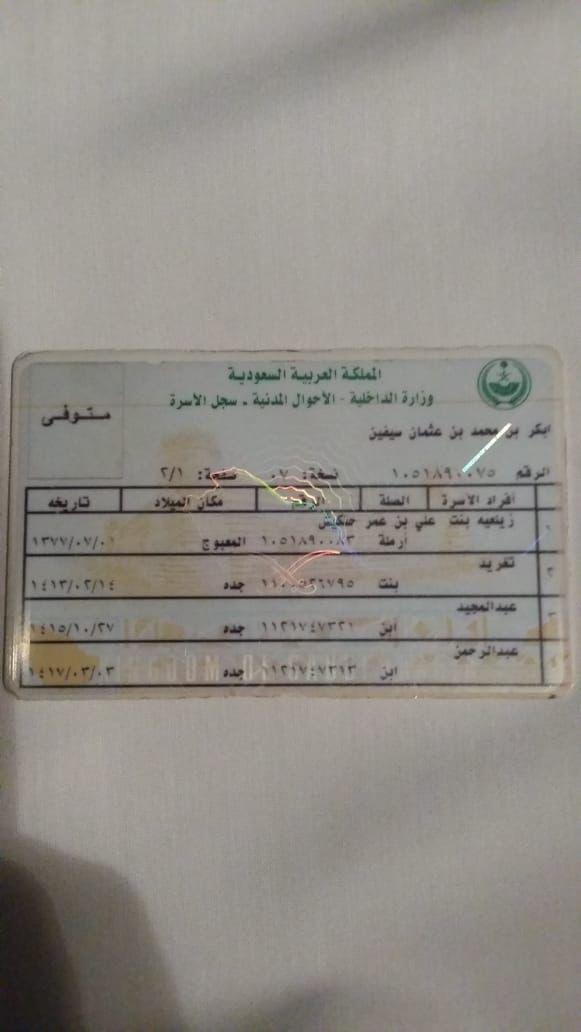 المملكة العربية السعودية
وزارة الداخلية - الأحوال المدنية - سجل الأسرة
متوفى
ابكر بن محمد بن عثمان سيفين
الرقم ١٠٥١٨٩٠٠٧٥ نسخة: ٠٧ صفحة: ٢/١
أفراد الأسرة الصلة الرقم مكان الميلاد تاريخه
١ زينعيه بنت علي بن عمر
أرملة ١٠٥١٨٩٠٠٨٣ المعبوج ١٣٧٧/٠٧/٠١
٢ تغريد
بنت جده ١٤١٣/٠٢/١٤
٣ عبدالمجيد
ابن ١١٢١٧٤٧٣٢١ جده ١٤١٥/١٠/٢٧
عبدالرحمن
ابن ١١٢١٧٤٧٣١٣ جده ١٤١٧/٠٣/٠٣